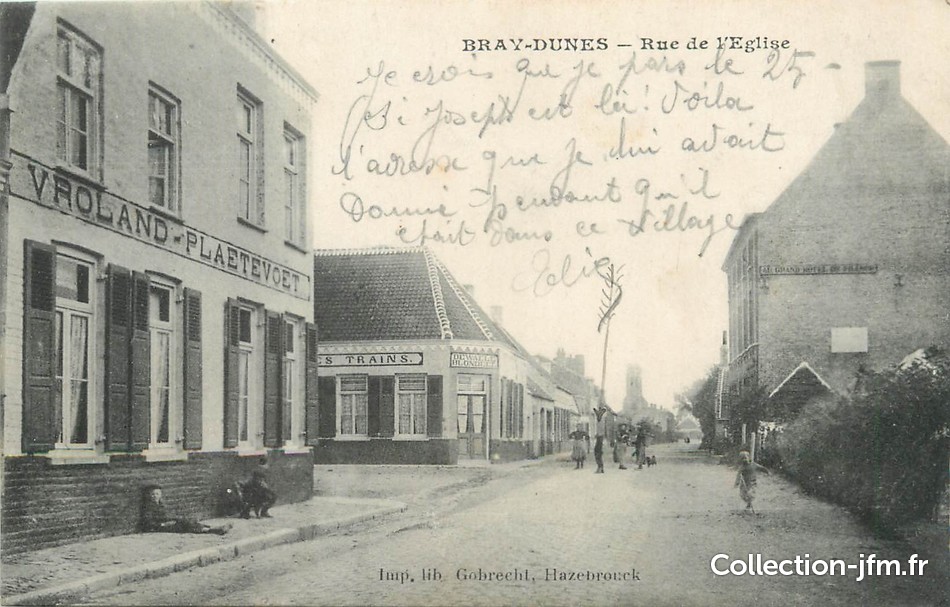 BRAY-DUNES — Rue de l'Eglise
Je crois que je pars le 25 -
Si Joseph est là ! Voila
l'adresse que je lui avait
Donné pendant qu'il
était dans ce village
VROLAND-PLAETEVOET
S TRAINS.
Imp. lib Gobrecht, Hazebrouck
Collection-jfm.fr